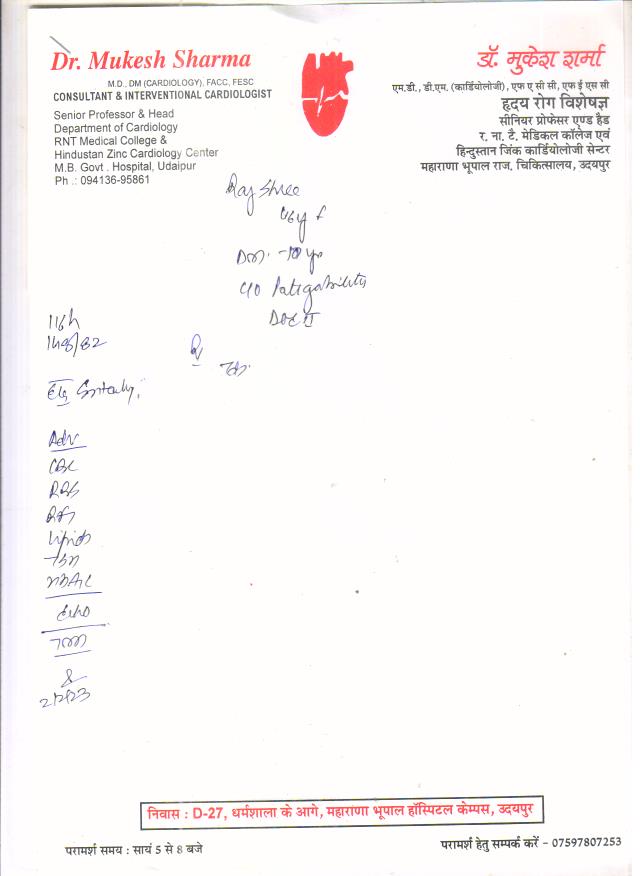 Dr. Mukesh Sharma
M.D., DM (CARDIOLOGY), FACC, FESC
CONSULTANT & INTERVENTIONAL CARDIOLOGIST
Senior Professor & Head
Department of Cardiology
RNT Medical College &
Hindustan Zinc Cardiology Center
M.B. Govt . Hospital, Udaipur
Ph .: 094136-95861
डॉ. मुकेश शर्मा
एम.डी., डी.एम. (कार्डियोलॉजी), एफ ए सी सी, एफ ई एस सी
हृदय रोग विशेषज्ञ
सीनियर प्रोफेसर एण्ड हैड
र. ना. टै. मेडिकल कॉलेज एवं
हिन्दुस्तान जिंक कार्डियोलॉजी सेन्टर
महाराणा भूपाल राज. चिकित्सालय, उदयपुर
Raj Shree
DM - 10 yr
C/O Fatigability
DOE II
Adv
CBC
RBS
RFT
Lipids
HbA1C
Echo
निवास : D-27, धर्मशाला के आगे, महाराणा भूपाल हॉस्पिटल केम्पस, उदयपुर
परामर्श समय : सायं 5 से 8 बजे
परामर्श हेतु सम्पर्क करें - 07597807253